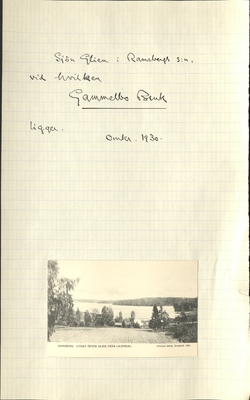 Sjön Glien i Ramsbergs s:n,
vid hvilken
Gammelbo Bruk
ligger.
Omkr. 1930.
RAMSBERG. UTSIKT ÖFVER GLIEN FRÅN